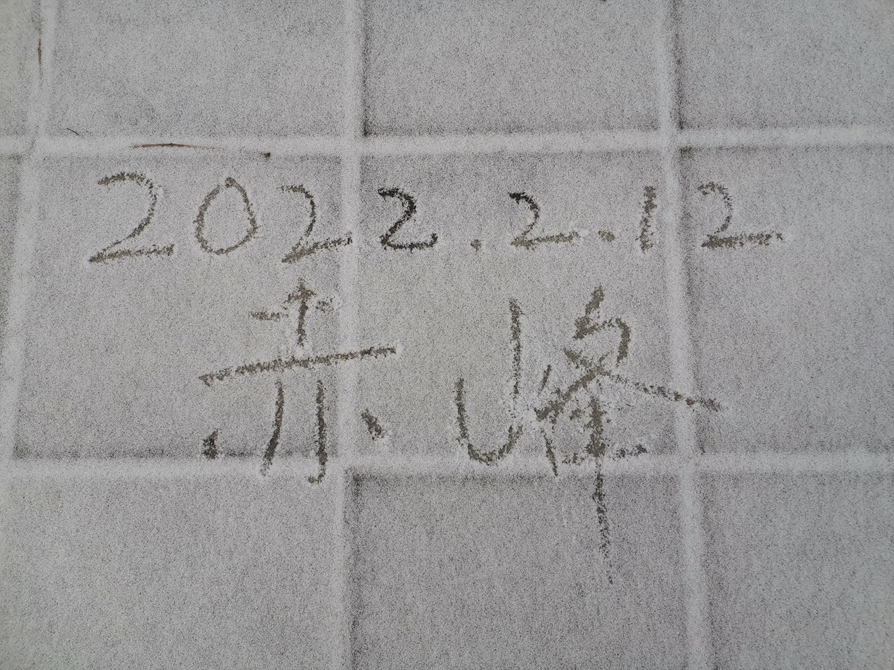 2022.2.12
赤峰